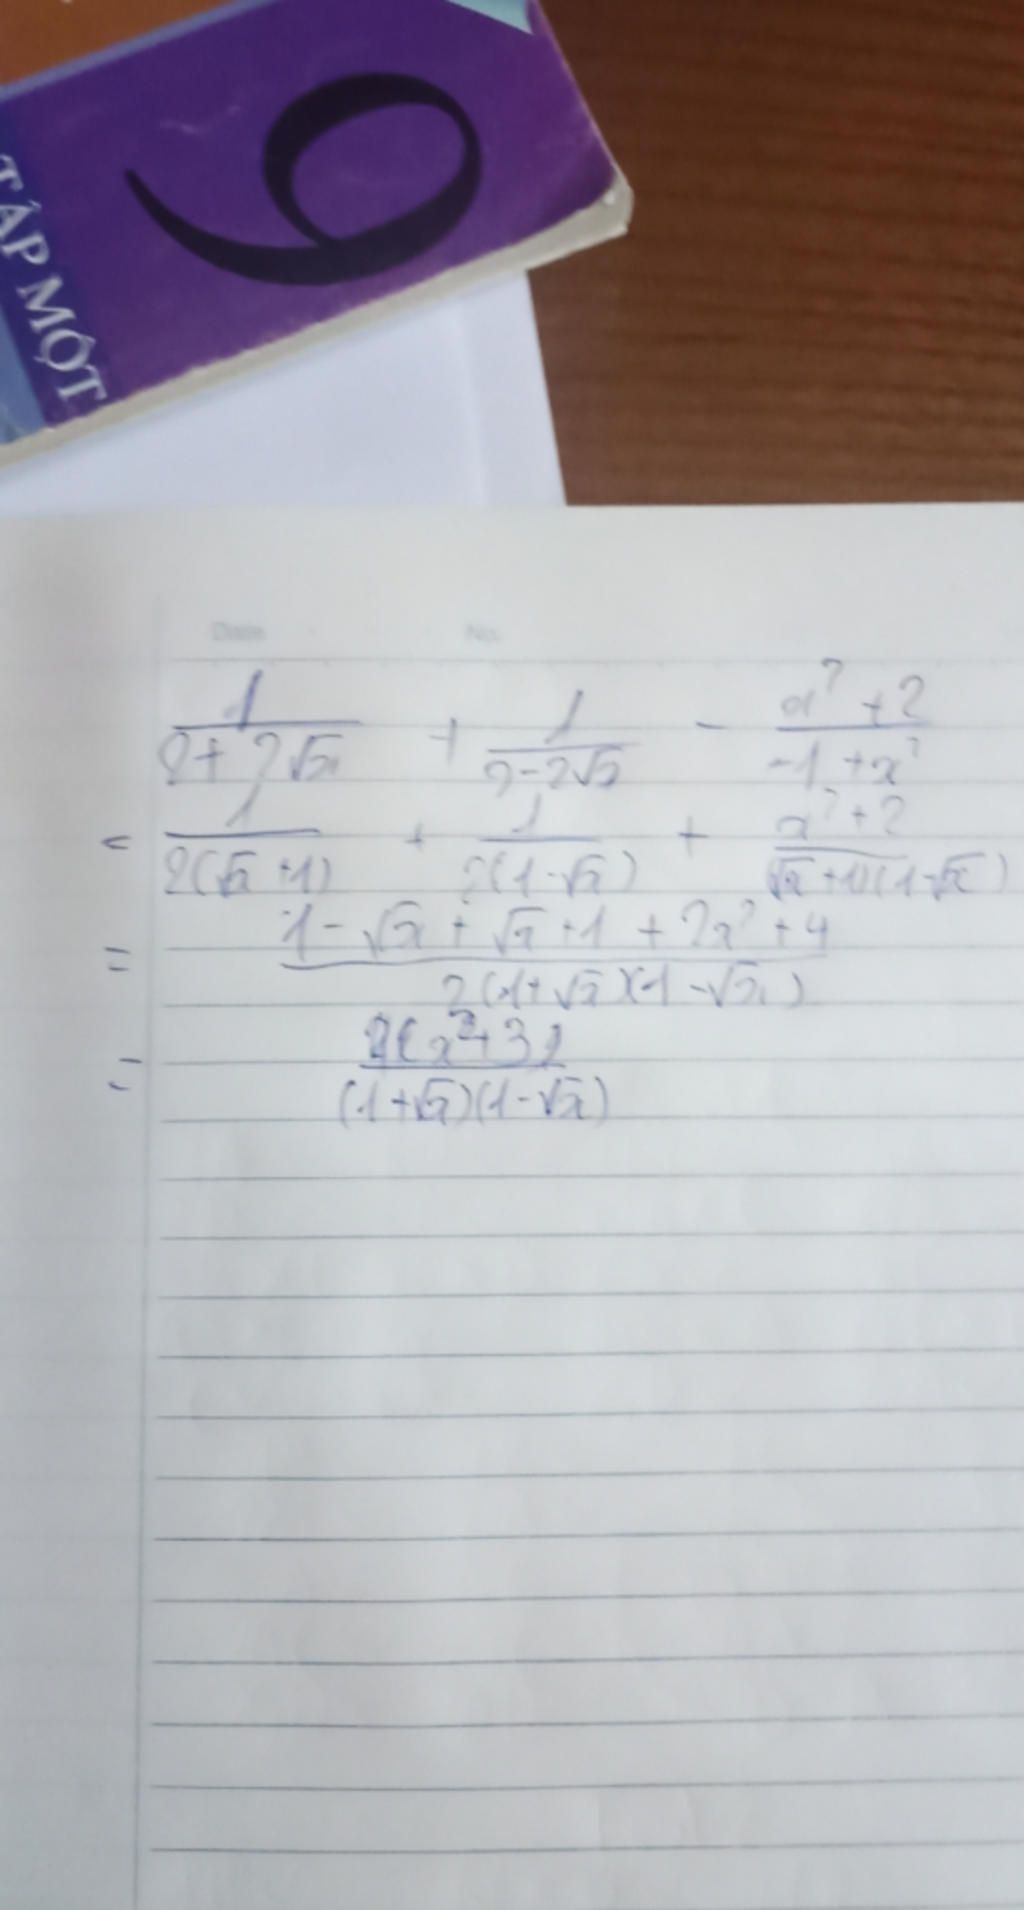 9
TẬP MỘT
Date No.
1/(2+2√x) + 1/(2-2√x) - (x²+2)/(-1+x²)
= 1/(2(√x+1)) + 1/(2(1-√x)) + (x²+2)/((√x+1)(1-√x))
= (1-√x+√x+1+2x²+4)/(2(1+√x)(1-√x))
= (x²+3)/((1+√x)(1-√x))